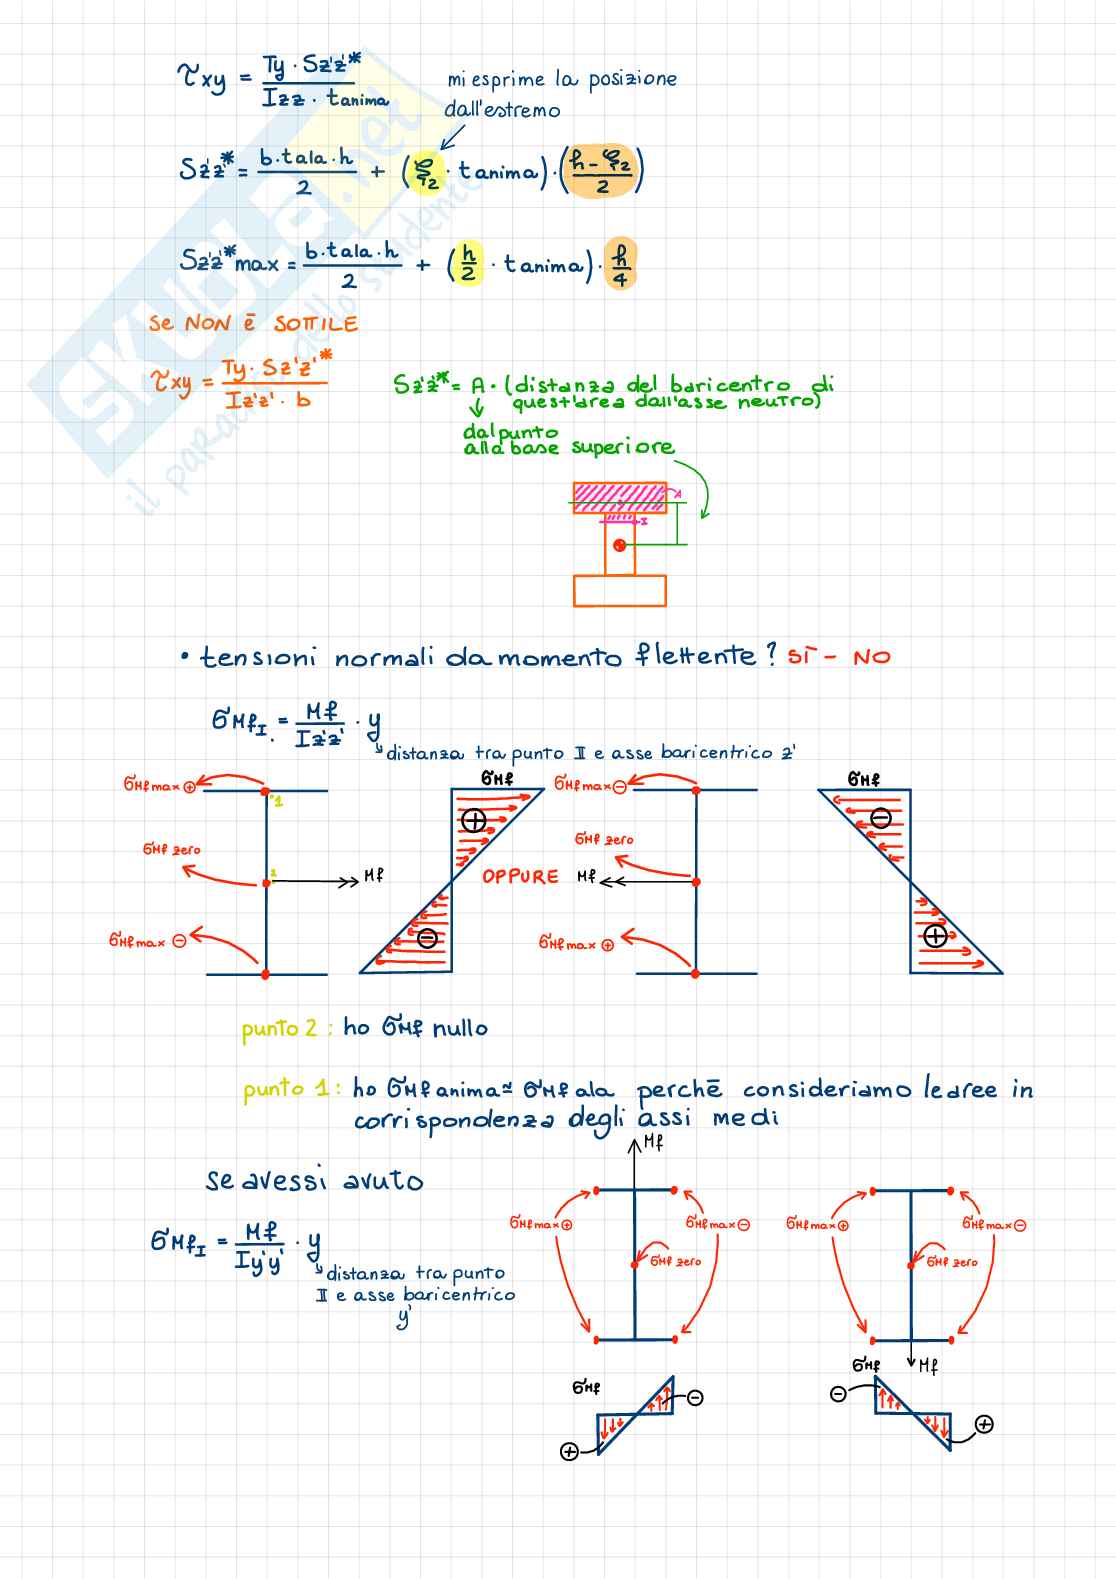 τxy = Ty · Sz'z'* / Izz · tanima
mi esprime la posizione
dall'estremo
Sz'z'* = b·tala·h / 2 + (ξ2 · tanima) · (h-ξ2 / 2)
Sz'z'*max = b·tala·h / 2 + (h/2 · tanima) · h/4
se NON è SOTTILE
τxy = Ty · Sz'z'* / Iz'z' · b
Sz'z'* = A · (distanza del baricentro di
quest'area dall'asse neutro)
dal punto
alla base superiore
A
I
• tensioni normali da momento flettente? SÌ - NO
σMfI = Mf / Iz'z' · y
distanza tra punto II e asse baricentrico z'
σMf max ⊕
1
σMf
σMf max ⊖
σMf
⊕
⊖
σMf zero
σMf zero
2
Mf
OPPURE
Mf
σMf max ⊖
⊖
σMf max ⊕
⊕
punto 2 : ho σMf nullo
punto 1 : ho σMf anima ≃ σMf ala perchè consideriamo le aree in
corrispondenza degli assi medi
Mf
se avessi avuto
σMf max ⊕
σMf max ⊖
σMf max ⊕
σMf max ⊖
σMfI = Mf / Iy'y' · y
σMf zero
σMf zero
distanza tra punto
II e asse baricentrico
y'
σMf
Mf
σMf
⊖
⊖
⊕
⊕
SKUOLA.net
il paradiso dello studente